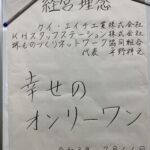 経営理念
ケイ・エイチ工業株式会社
KHスタッフステーション株式会社
堺ものづくりネットワーク協同組合
代表
幸せの
オンリーワン